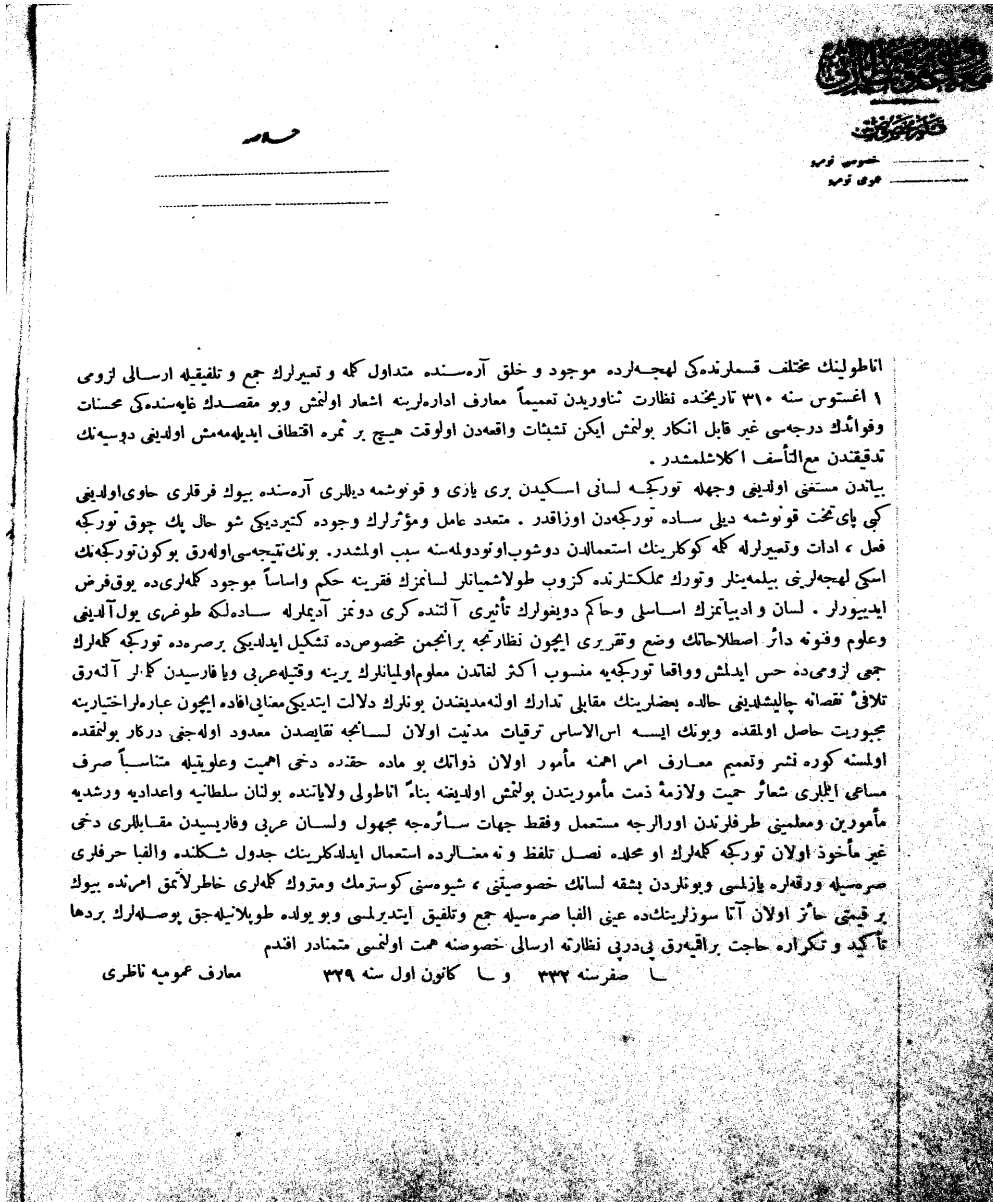 خلاصه
خصوصی نومرو
عمومی نومرو
اناطولینك مختلف قسملرنده‌كی لهجه‌لرده موجود و خلق آره‌سنده متداول كلمه و تعبیرلرك جمع و تلفیقیله ارسالی لزومی
١ اغستوس سنه ٣١٠ تاریخنده نظارت ثناوریدن تعمیماً معارف اداره‌لرینه اشعار اولنمش وبو مقصدك غایه‌سنده‌كی محسنات
وفوائدك درجه‌سی غیر قابل انكار بولنمش ایكن تشبثات واقعه‌دن اولوقت هیچ بر ثمره اقتطاف ایدیله‌مه‌مش اولدیغی دوسیه‌نك
تدقیقندن مع‌التأسف اكلاشلمشدر .
بیاندن مستغنی اولدیغی وجهله توركجه لسانی اسكیدن بری یازی و قونوشمه دیللری آره‌سنده بیوك فرقلری حاوی‌اولدیغی
كبی پای‌تخت قونوشمه دیلی ساده توركجه‌دن اوزاقدر . متعدد عامل ومؤثرلرك وجوده كتیردیكی شو حال پك چوق توركجه
فعل ، ادات وتعبیرلرله كلمه كوكلرینك استعمالدن دوشوب‌اونودولمه‌سنه سبب اولمشدر. بونك‌نتیجه‌سی‌اوله‌رق بوكون‌توركجه‌نك
اسكی لهجه‌لرینی بیلمه‌ینلر وتورك مملكتلرنده كزوب طولاشمیانلر لسانمزك فقرینه حكم واساساً موجود كلمه‌لری‌ده یوق‌فرض
ایدییورلر . لسان و ادبیاتمزك اساسلی وحاكم دویغولرك تأثیری آلتنده كری دونمز آدیملرله ساده‌لكه طوغری یول‌آلدیغی
وعلوم وفنونه دائر اصطلاحاتك وضع وتقریری ایچون نظارتجه برانجمن مخصوص‌ده تشكیل ایدلدیكی برصره‌ده توركجه كلمه‌لرك
جمعی لزومی‌ده حس ایدلمش وواقعا توركجه‌یه منسوب اكثر لغاتدن معلوم‌اولمیانلرك یرینه وقتیله‌عربی ویافارسیدن كلمه‌لر آلنه‌رق
تلافیٔ نقصانه چالیشلدیغی حالده بعضلرینك مقابلی تدارك اولنه‌مدیغندن بونلرك دلالت ایتدیكی‌معنایی‌افاده ایچون عباره‌لراختیارینه
مجبوریت حاصل اولمقده وبونك ایسه اس‌الاساس ترقیات مدنیت اولان لسانجه نقایصدن معدود اوله‌جغی دركار بولنمقده
اولمسنه كوره نشر وتعمیم معارف امر اهمنه مأمور اولان ذواتك بو ماده حقنده دخی اهمیت وعلویتیله متناسباً صرف
مساعی ایلملری شعائر حمیت ولازمهٔ ذمت مأموریتدن بولنمش اولدیغنه بناءً اناطولی ولایاتنده بولنان سلطانیه واعدادیه ورشدیه
مأمورین ومعلمینی طرفلرندن اورالرجه مستعمل وفقط جهات سائره‌جه مجهول ولسان عربی وفاریسیدن مقابللری دخی
غیر مأخوذ اولان توركجه كلمه‌لرك او محلده نصل تلفظ و نه معنالرده استعمال ایدلدكلرینك جدول شكلنده والفبا حرفلری
صره‌سیله ورقه‌لره یازلمسی وبونلردن بشقه لسانك خصوصیتنی ، شیوه‌سنی كوسترمك ومتروك كلمه‌لری خاطرلاتمق امرنده بیوك
بر قیمتی حائز اولان آتا سوزلرینك‌ده عینی الفبا صره‌سیله جمع وتلفیق ایتدیرلمسی وبو یولده طوپلانیله‌جق پوصله‌لرك بردها
تأكید و تكراره حاجت براقیه‌رق پی‌درپی نظارته ارسالی خصوصنه همت اولنمسی متمنادر افندم
صفر سنه ٣٣٢ و كانون اول سنه ٣٢٩ معارف عمومیه ناظری